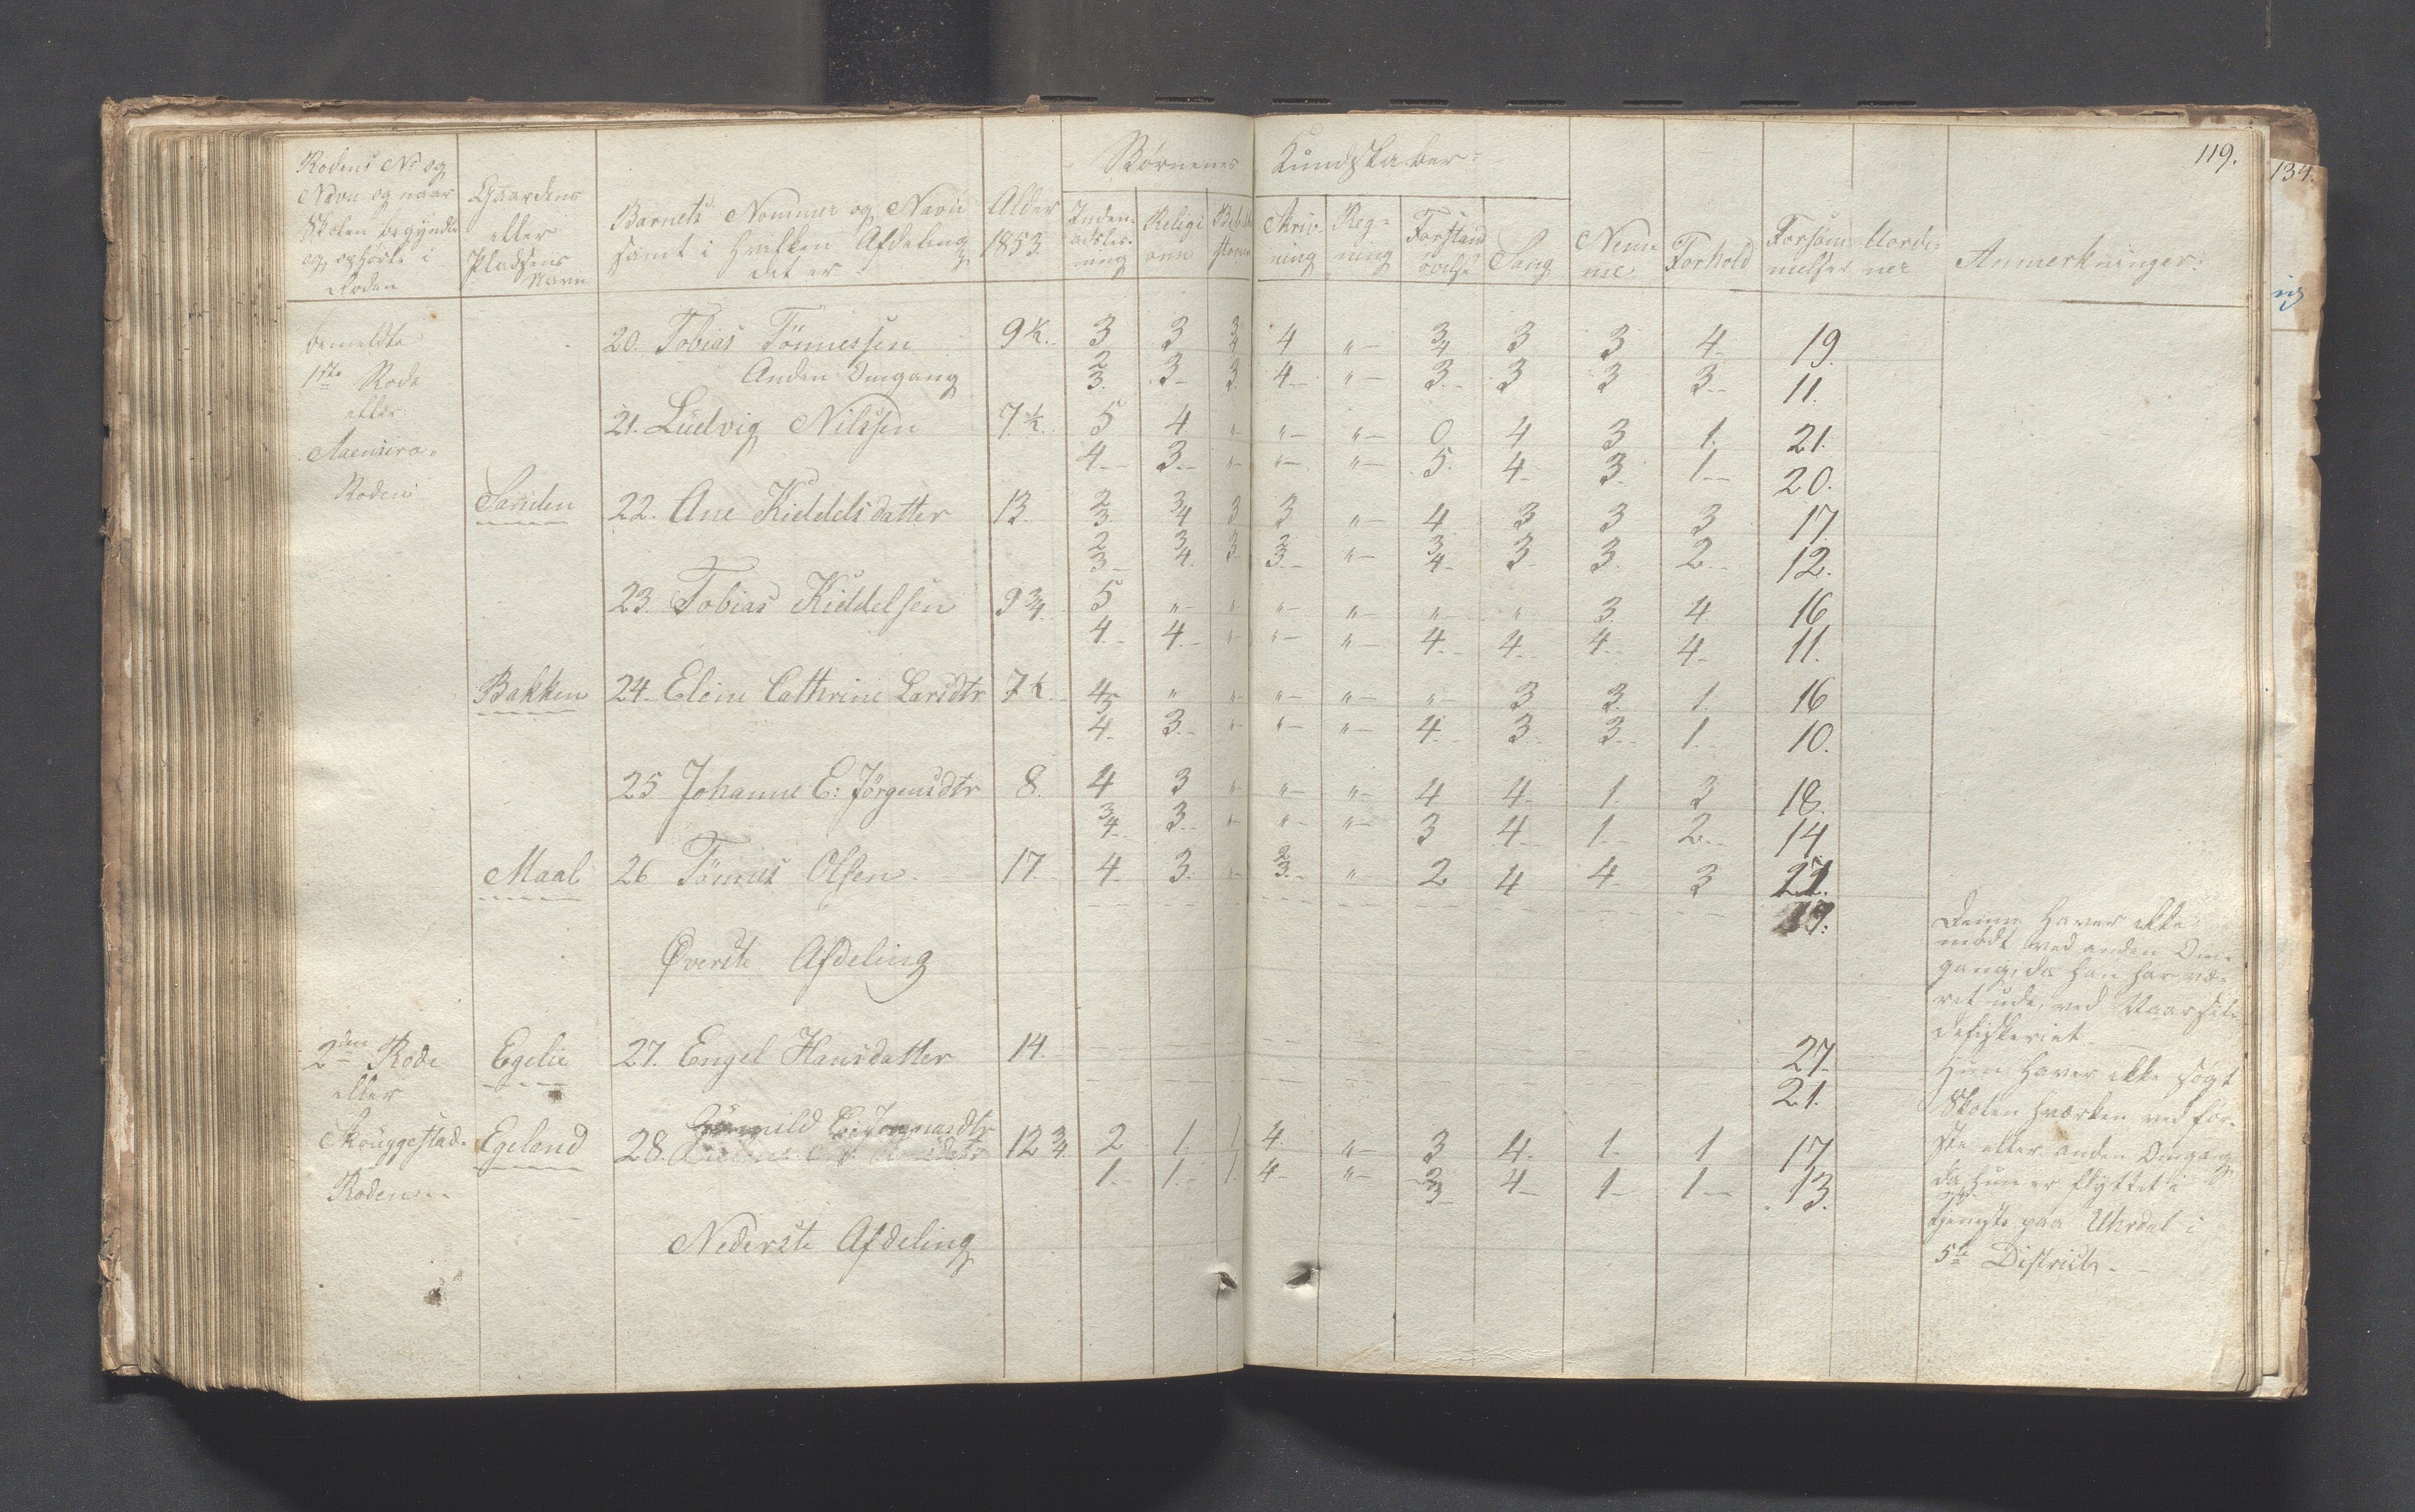 119.
134.
Børnenes Kundskaber:
Rodens No og
Navn og naar
Skolen begyndte
og ophørte i
Roden
Gaardens
eller
Pladsens
Navn
Barnets Nommer og Navn
samt i hvilken Afdeling
det er
Alder
1853.
Inden-
adsles-
ning
Religi
onen
Skriv-
ning
Reg-
ning
Forstand
øvelse
Sang
Nem-
me
Forhold
Forsøm-
melser
Uorde-
ner
Anmerkninger.
bemeldte
1ste Rode
eller
Roden
20. Tobias Tönnessen 9½. 3 3 3/4 4 „ 3/4 3 3 4 19.
Anden Omgang 2/3. 3 3. 4 „ 3. 3 3 3 11.
21. Ludvig Nilssen 7½. 5 4 „ „ „ 0 4 3 1. 21.
4 3 „ „ „ 5. 4 3 1 20.
Sanden 22. Ane Kieddelsdatter 13. 2/3 3/4 3 3 „ 4 3 3 3 17.
2/3 3/4 3 2/3 „ 3/4 3 3. 2 12.
23. Tobias Kieddelsen 9¾ 5 „ „ „ „ „ „ 3. 4 16
4. 4 „ „ „ 4 4 4 4 11.
Bakken 24. Eline Cathrine Larsdtr 7½ 4/5 „ „ „ „ „ 3 3. 1. 16
4 3. „ „ „ 4. 3 3 1. 10.
25 Johanne E: Jørgensdtr 8. 4 3 „ „ „ 4 4 1. 3 18.
3/4 3 „ „ „ 3 4 1 2 14.
Maal 26 Tönnes Olsen 17. 4. 3. „ 2/3. „ 2 4 4 3
Øverste Afdeling
Denne haver ikke
mødt ved anden Om-
gang, da han har væ-
ret ude ved Vaarsil-
defiskeriet
2den Rode
eller
Skouggestad-
Roden
Egelie 27. Engel Hansdatter 14. 27.
21.
Hun haver ikke søgt
Skolen hverken ved för-
ste eller anden Omgang
da hun er flyttet i
Tjeneste paa Uhrdal i
5te District.
Egeland 28. 12¾ 2 1. 1 4. „ 3 4. 1. 1 17.
1. 1. 1. 4 „ 2/3 4 1 1 13.
Nederste Afdeling